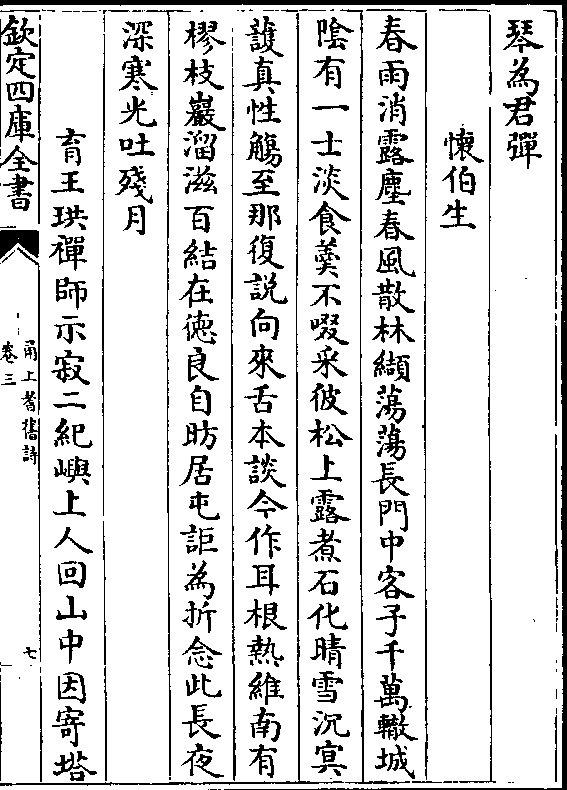 琴為君彈
懐伯生
春雨消露塵春風散林纈蕩蕩長門中客子千萬轍城
陰有一士淡食羮不啜采彼松上露煮石化晴雪沉㝠
䕶真性觴至那復説向來舌本談今作耳根熱維南有
樛枝巖溜滋百結在徳良自昉居屯詎為折念此長夜
深寒光吐殘月
育王珙禪師示寂二紀嶼上人回山中因寄塔
欽定四庫全書
甬上耆舊詩
卷三
七